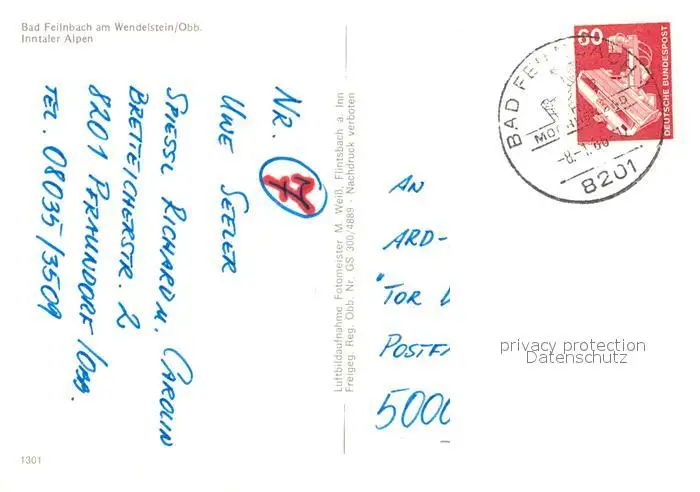 Bad Feilnbach am Wendelstein/Obb.
Inntaler Alpen
NR. 7
UWE SEELER
SPIESSL RICHARD U. CAROLIN
BRETTEICHERSTR. 2
8201 PFRAUNDORF/OBB.
TEL. 08035/3509
Luftbildaufnahme Fotomeister M. Weiß, Flintsbach a. Inn
Freigeg. Reg. Obb. Nr. GS 300/4889 - Nachdruck verboten
60
DEUTSCHE BUNDESPOST
BAD FEILNBACH
8201
AN
ARD-
"TOR
POSTFA
5000
privacy protection
Datenschutz
1301